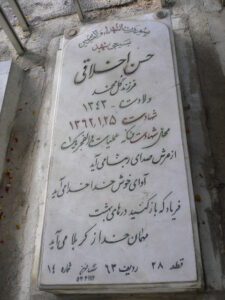 بسیجی شهید
حسن اخلاقی
فرزند محمد
ولادت - ۱۳۴۳
شهادت ۱۳۶۲،۱،۲۵
محل شهادت فکه عملیات والفجر یک
از عرش صدای ربنا می آید
آوای خوش خدا خدا می آید
فریاد که باز کنید درهای بهشت
مهمان خدا از کربلا می آید
قطعه ۲۸ ردیف ۶۳ شماره ۱۴